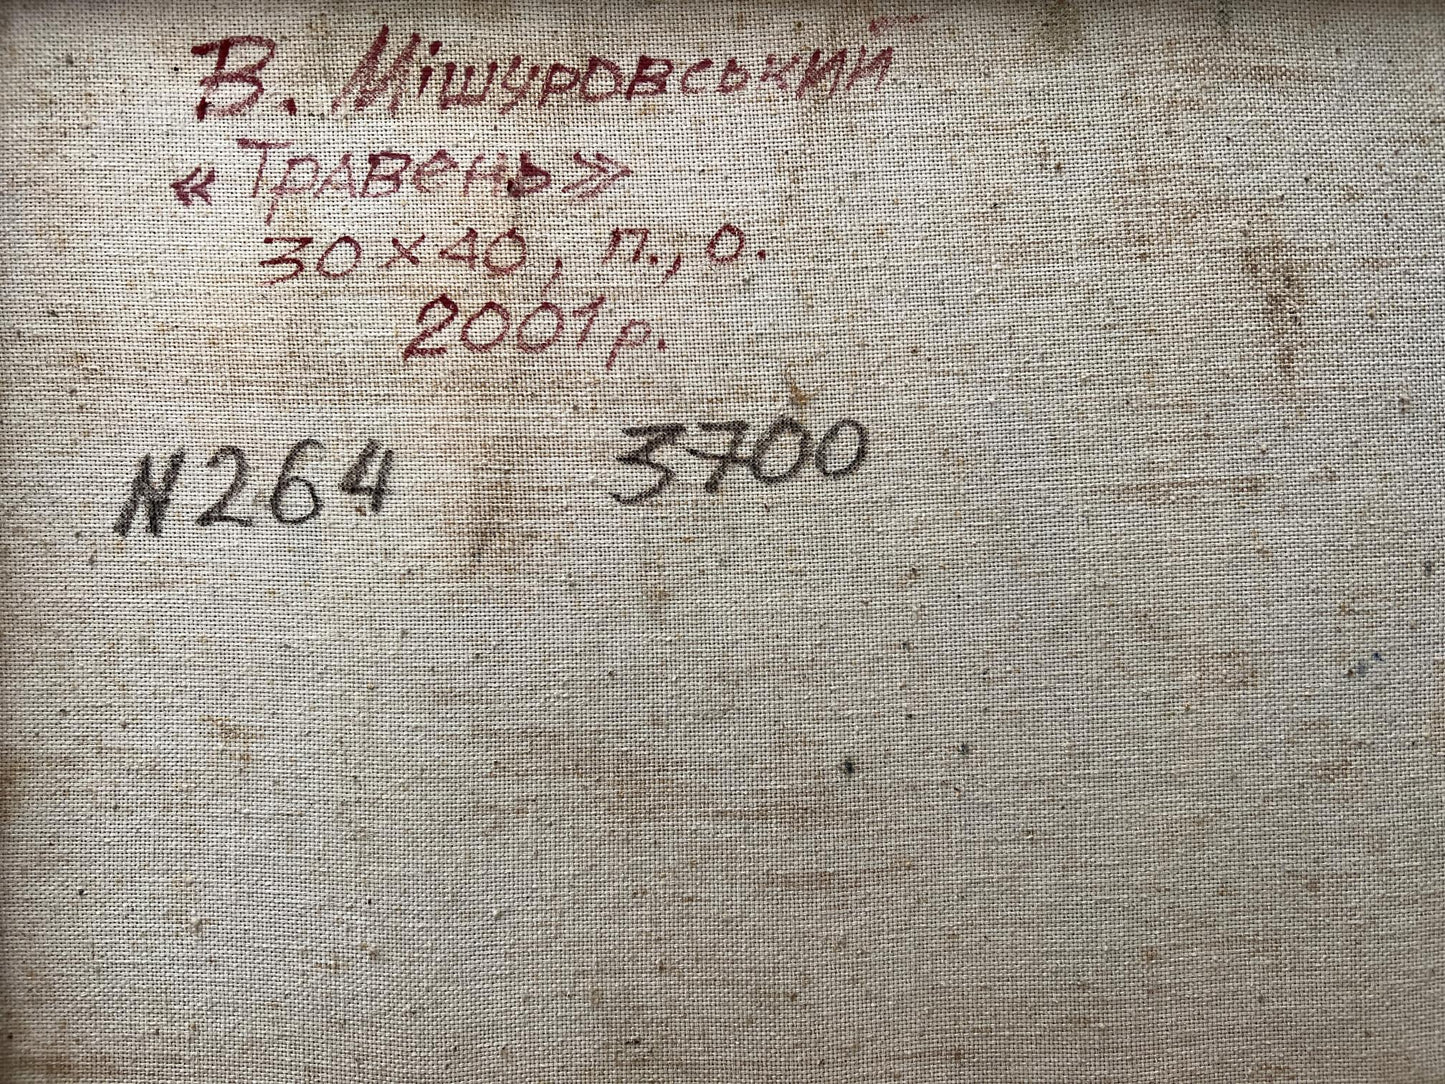 В. Мішуровський
«Травень»
30×40, п., о.
2001 р.
N264 3700